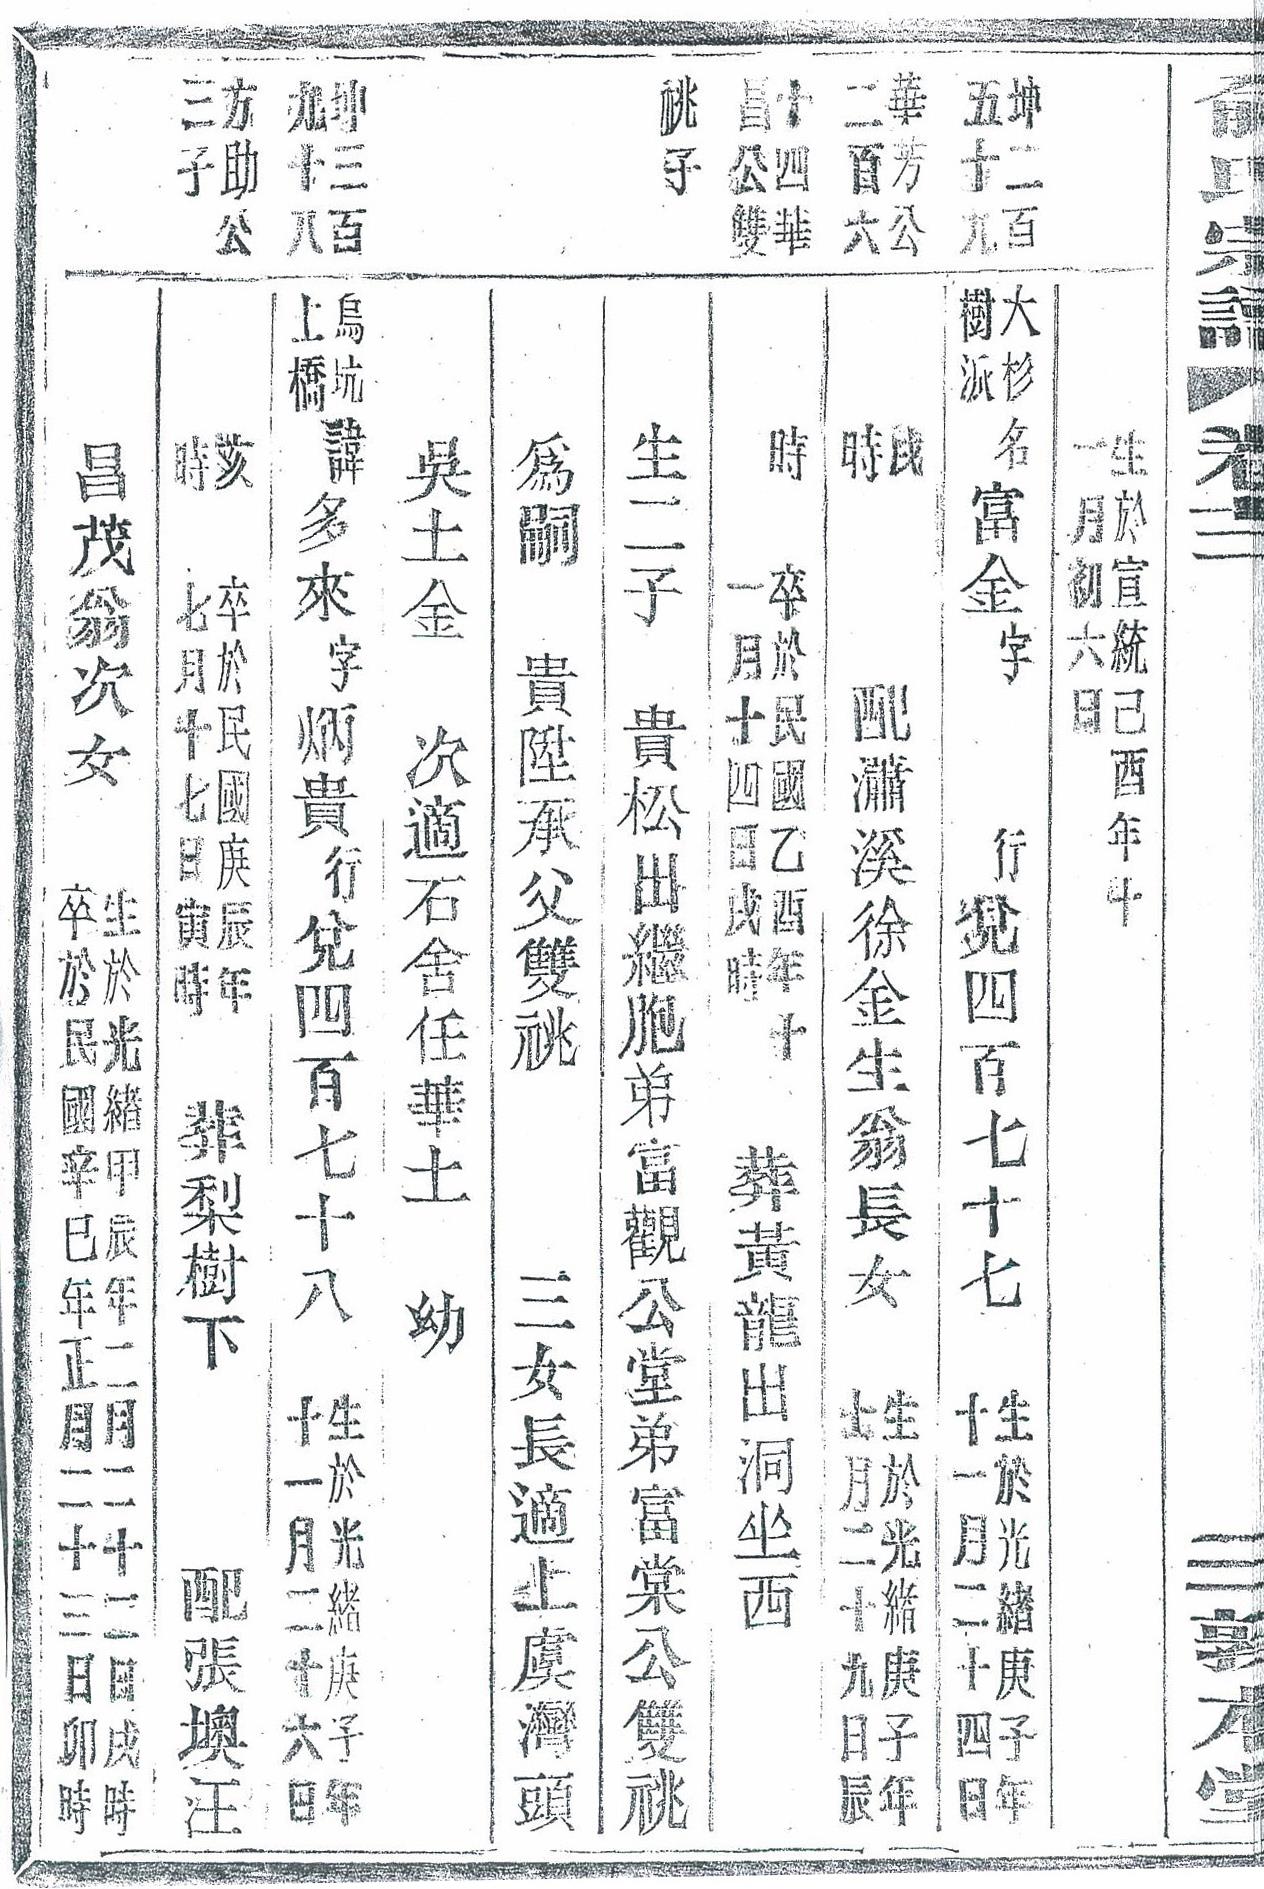 俞氏宗譜 卷二 三 敦本堂
生於宣統己酉年十
一月初六日
坤二百
五十九
大杉
樹派
名富金字 行兌四百七十七
生於光緒庚子年
十一月二十四日
華芳公
二百六
戌
時
配瀟溪徐金生翁長女
生於光緒庚子年
七月二十九日辰
十四華
昌公雙
時
卒於民國乙酉年十
一月十四日戌時
葬黃龍出洞坐西
祧子
生二子 貴松出繼胞弟富觀公堂弟富棠公雙祧
爲嗣 貴陞承父雙祧 三女長適上虞灣頭
吳土金 次適石舍任華土 幼
坤三百
九十八
烏坑
上橋
諱多來字炳貴行兌四百七十八
生於光緒庚子年
十一月二十六日
方助公
三子
亥
時
卒於民國庚辰年
七月十七日寅時
葬梨樹下 配張墺汪
昌茂翁次女
生於光緒甲辰年二月二十二日戌時
卒於民國辛巳年正月二十三日卯時